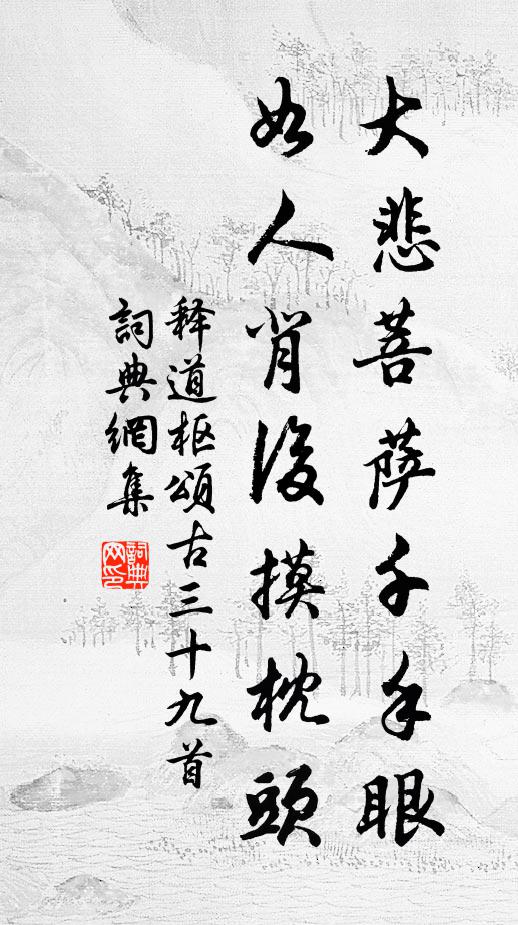 大悲菩萨千手眼
如人背後摸枕頭
释道枢頌古三十九首
詞典網集
詞典
网印